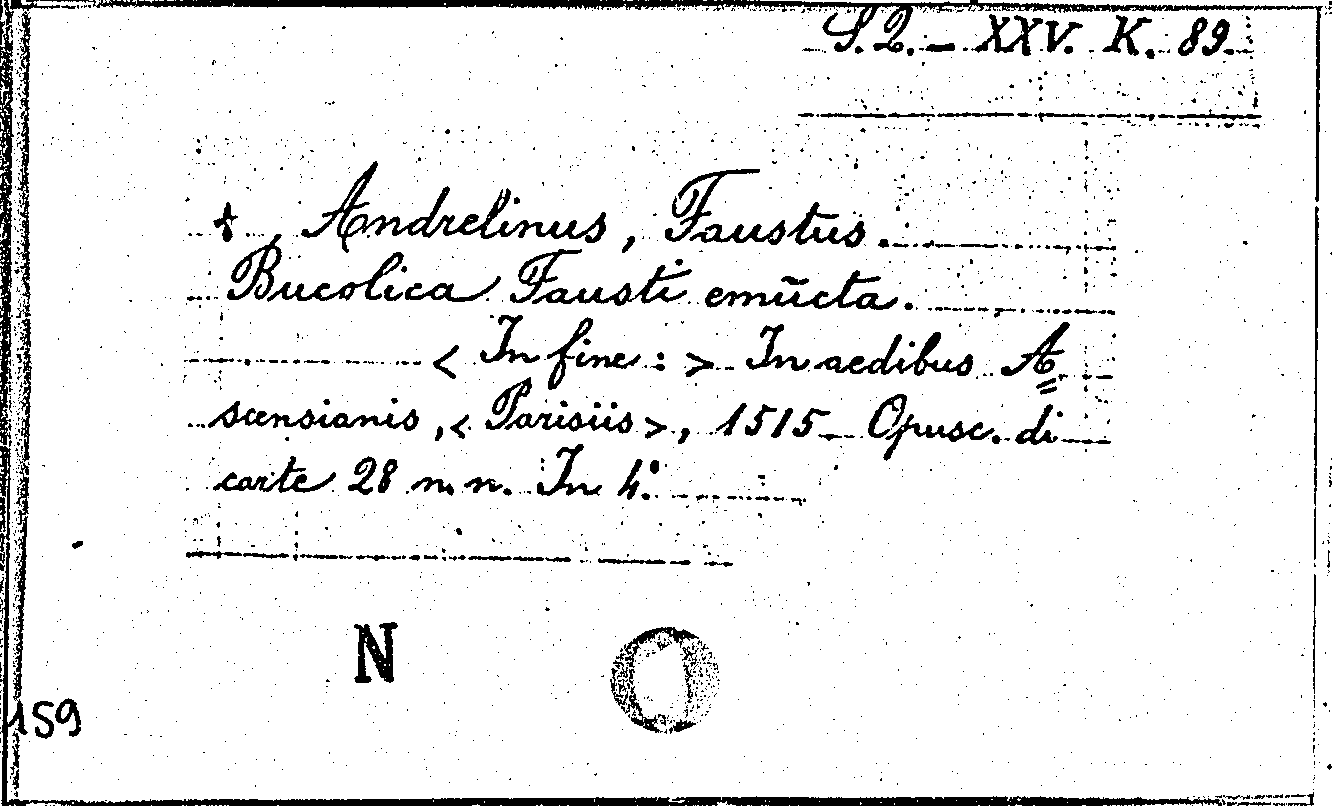 S.Q. - XXV. K. 89.
+ Andrelinus, Faustus.
Bucolica Fausti emũcta.
< In fine : > In aedibus A=
scensianis, < Parisiis >, 1515 - Opusc. di
carte 28 n. n. In 4.º
N
159